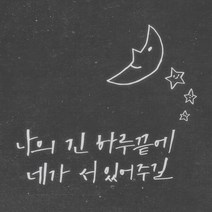 나의 긴 하루끝에
네가 서 있어주길